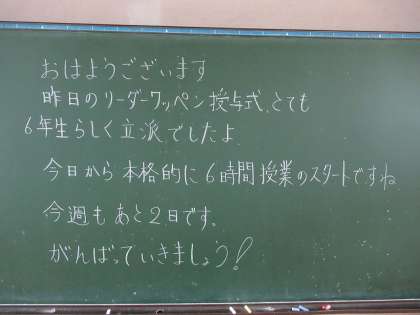 おはようございます
昨日のリーダーワッペン授与式、とても
6年生らしく立派でしたよ
今日から本格的に6時間授業のスタートですね
今週もあと2日です。
がんばっていきましょう!